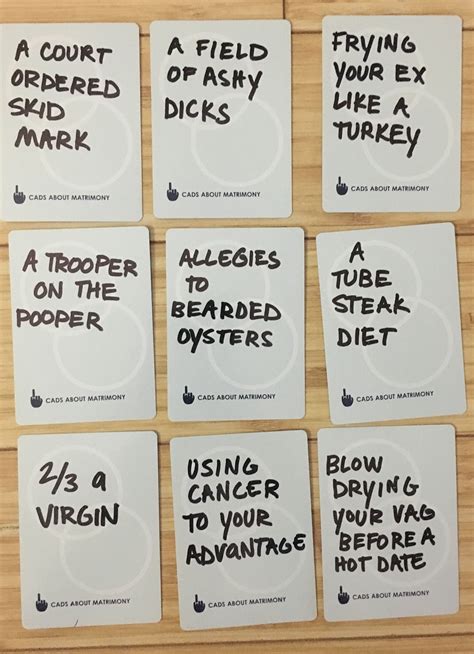 A COURT
ORDERED
SKID
MARK
CADS ABOUT MATRIMONY
A FIELD
OF ASHY
DICKS
CADS ABOUT MATRIMONY
FRYING
YOUR EX
LIKE A
TURKEY
CADS ABOUT MATRIMONY
A TROOPER
ON THE
POOPER
CADS ABOUT MATRIMONY
ALLEGIES
TO
BEARDED
OYSTERS
CADS ABOUT MATRIMONY
A
TUBE
STEAK
DIET
CADS ABOUT MATRIMONY
2/3 a
VIRGIN
CADS ABOUT MATRIMONY
USING
CANCER
TO YOUR
ADVANTAGE
CADS ABOUT MATRIMONY
BLOW
DRYING
YOUR VAG
BEFORE A
HOT DATE
CADS ABOUT MATRIMONY